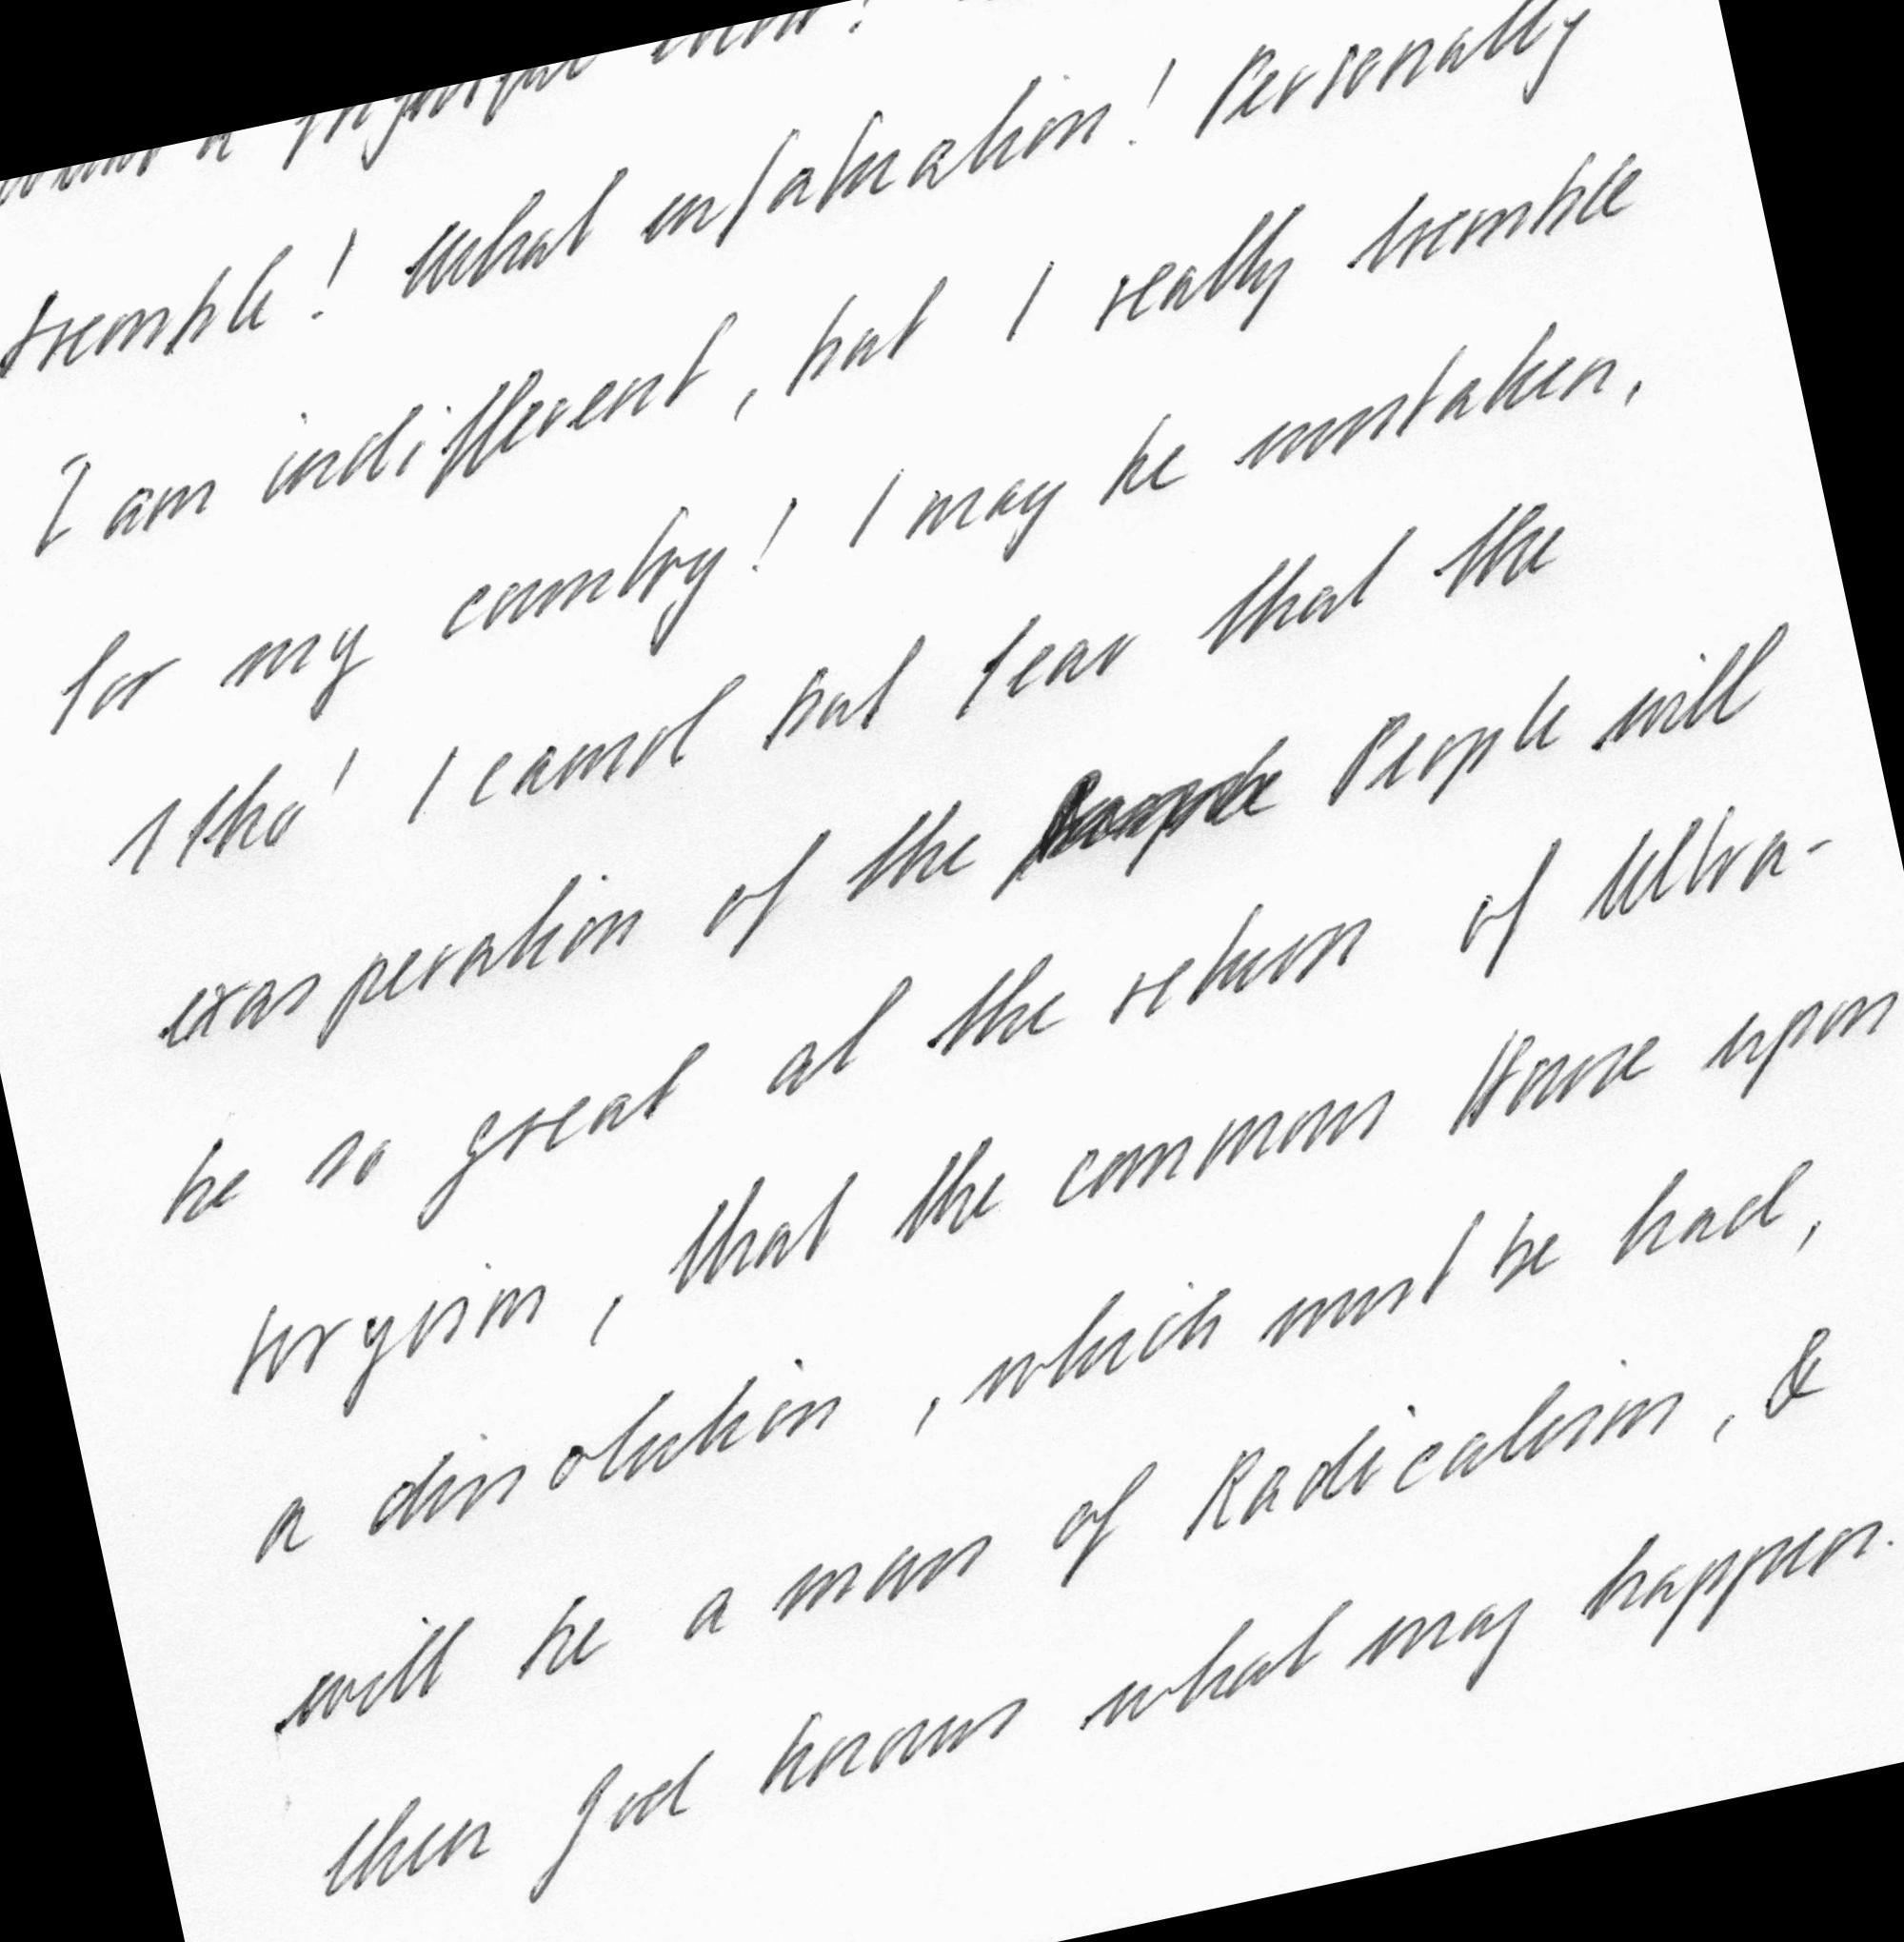 a frightful
tremble! What infatuation! Personally
I am indifferent, but I really tremble
for my country! I may be mistaken,
& tho' I cannot but fear that the
exasperation of the People will
be so great at the return of Ultra-
toryism, that the commons House upon
a dissolution, which must be had,
will be a mass of Radicalism, &
then God knows what may happen.